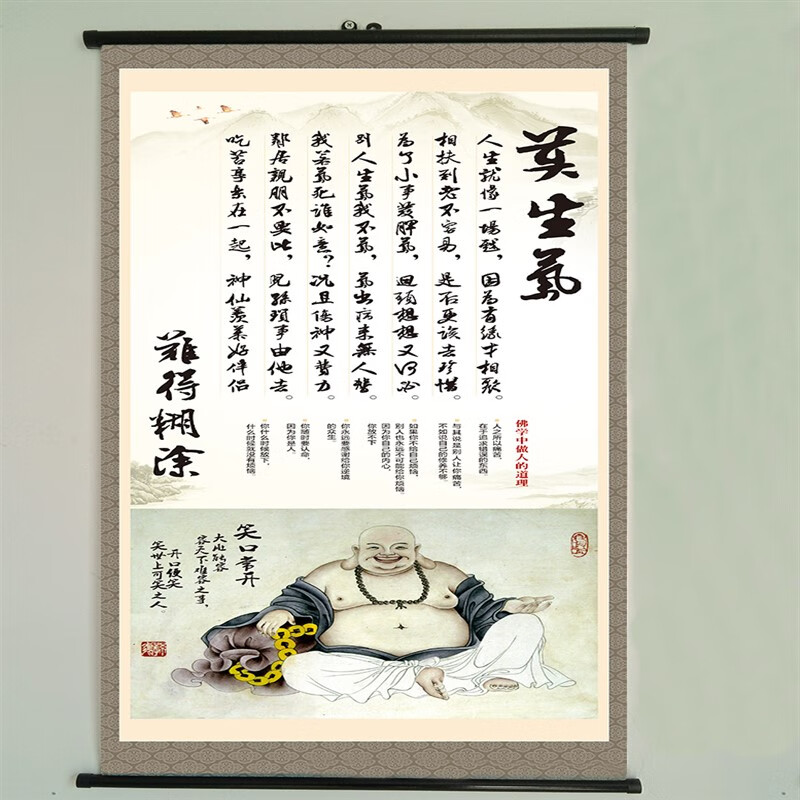 莫生氣
人生就像一場戲，因為有緣才相聚。
相扶到老不容易，是否更該去珍惜。
為了小事發脾氣，回頭想想又何必
别人生氣我不氣，氣出病來無人替
我若氣死誰如意？况且傷神又費力。
鄰居親朋不要比，兒孫瑣事由他去。
吃苦享樂在一起，神仙羡慕好伴侣
難得糊塗
佛学中做人的道理
人之所以痛苦，
在于追求错误的东西
与其说是别人让你痛苦，
不如说自己的修养不够。
如果你不给自己烦恼，
别人也永远不可能给你烦恼
因为你自己的内心，
你放不下
你永远要感谢给你逆境
的众生。
你随时要认命，
因为你是人。
你什么时候放下，
什么时候就没有烦恼
笑口常开
大肚能容
容天下难容之事，
开口便笑
笑世上可笑之人。